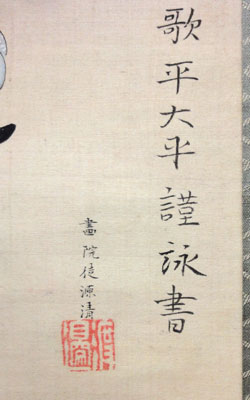 歌平大平謹詠書
畫院使源清